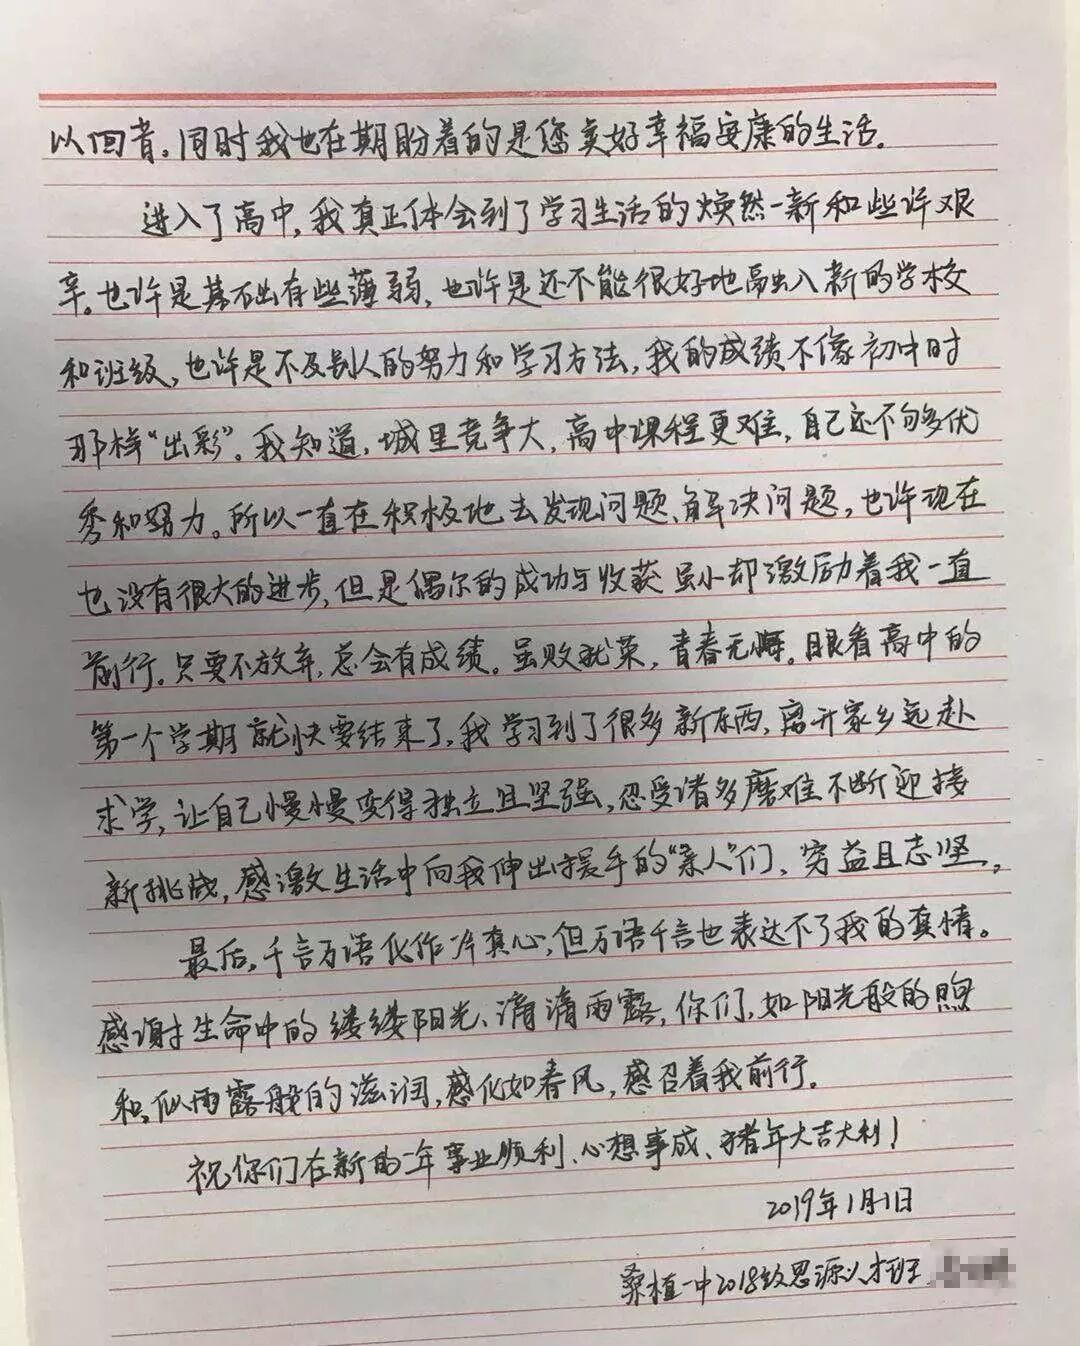 以回音。同时我也在期盼着的是您美好幸福安康的生活.
进入了高中,我真正体会到了学习生活的焕然一新和些许艰
辛。也许是基础有些薄弱,也许是还不能很好地融入新的学校
和班级,也许是不及别人的努力和学习方法,我的成绩不像初中时
那样“出彩”。我知道,城里竞争大,高中课程更难,自己还不够优
秀和努力。所以一直在积极地去发现问题、解决问题,也许现在
也没有很大的进步,但是偶尔的成功与收获虽小却激励着我一直
前行.只要不放弃,总会有成绩。虽败犹荣,青春无悔.眼看高中的
第一个学期就快要结束了,我学习到了很多新东西,离开家乡远赴
求学,让自己慢慢变得独立且坚强,忍受诸多磨难不断迎接
新挑战,感激生活中向我伸出援手的“亲人”们、穷益且志坚。
最后,千言万语化作片真心,但万语千言也表达不了我的真情。
感谢生命中的缕缕阳光、滴滴雨露,你们,如阳光般的煦
和,似雨露般的滋润,感化如春风,感召着我前行.
祝你们在新的一年事业顺利、心想事成、猪年大吉大利!
2019年1月1日
桑植一中2018级思源人才班